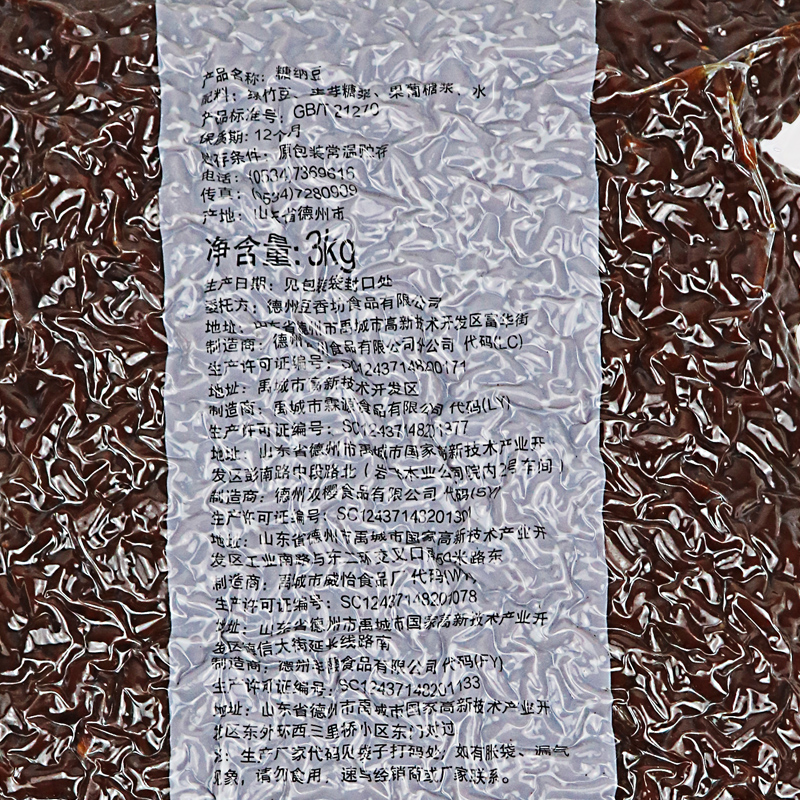 产品名称：糖纳豆
配料：绿竹豆、麦芽糖浆、果葡糖浆、水
产品标准号：GB/T 21270
保质期：12个月
贮存条件：原包装常温贮存
电话：(0534)7369616
传真：(0534)7280909
产地：山东省德州市
净含量：3kg
生产日期：见包装袋封口处
委托方：德州豆香坊食品有限公司
地址：山东省德州市禹城市高新技术开发区富华街
制造商：德州 食品有限公司 公司 代码(LC)
生产许可证编号：SC12437148200171
地址：禹城市高新技术开发区
制造商：禹城市霖源食品有限公司 代码(LY)
生产许可证编号：SC12437148201377
地址：山东省德州市禹城市国家高新技术产业开
发区彭南路中段路北（岩飞木业公司院内2号车间）
制造商：德州双樱食品有限公司 代码(SY)
生产许可证编号：
地址：山东省德州市禹城市国家高新技术产业开
发区工业南路与东二环交叉口 50米路东
制造商：禹城市威怡食品厂 代码(WY)
生产许可证编号：SC12437148201078
地址：山东省德州市禹城市国家高新技术产业开
发区 信大街延长线路南
制造商：德州 食品有限公司 代码(FY)
生产许可证编号：SC12437148201133
地址：山东省德州市禹城市国家高新技术产业开
发区东外环西三里桥小区东门对过
注：生产厂家代码见袋子打码处，如有胀袋、漏气
现象，请勿食用，速与经销商或厂家联系。